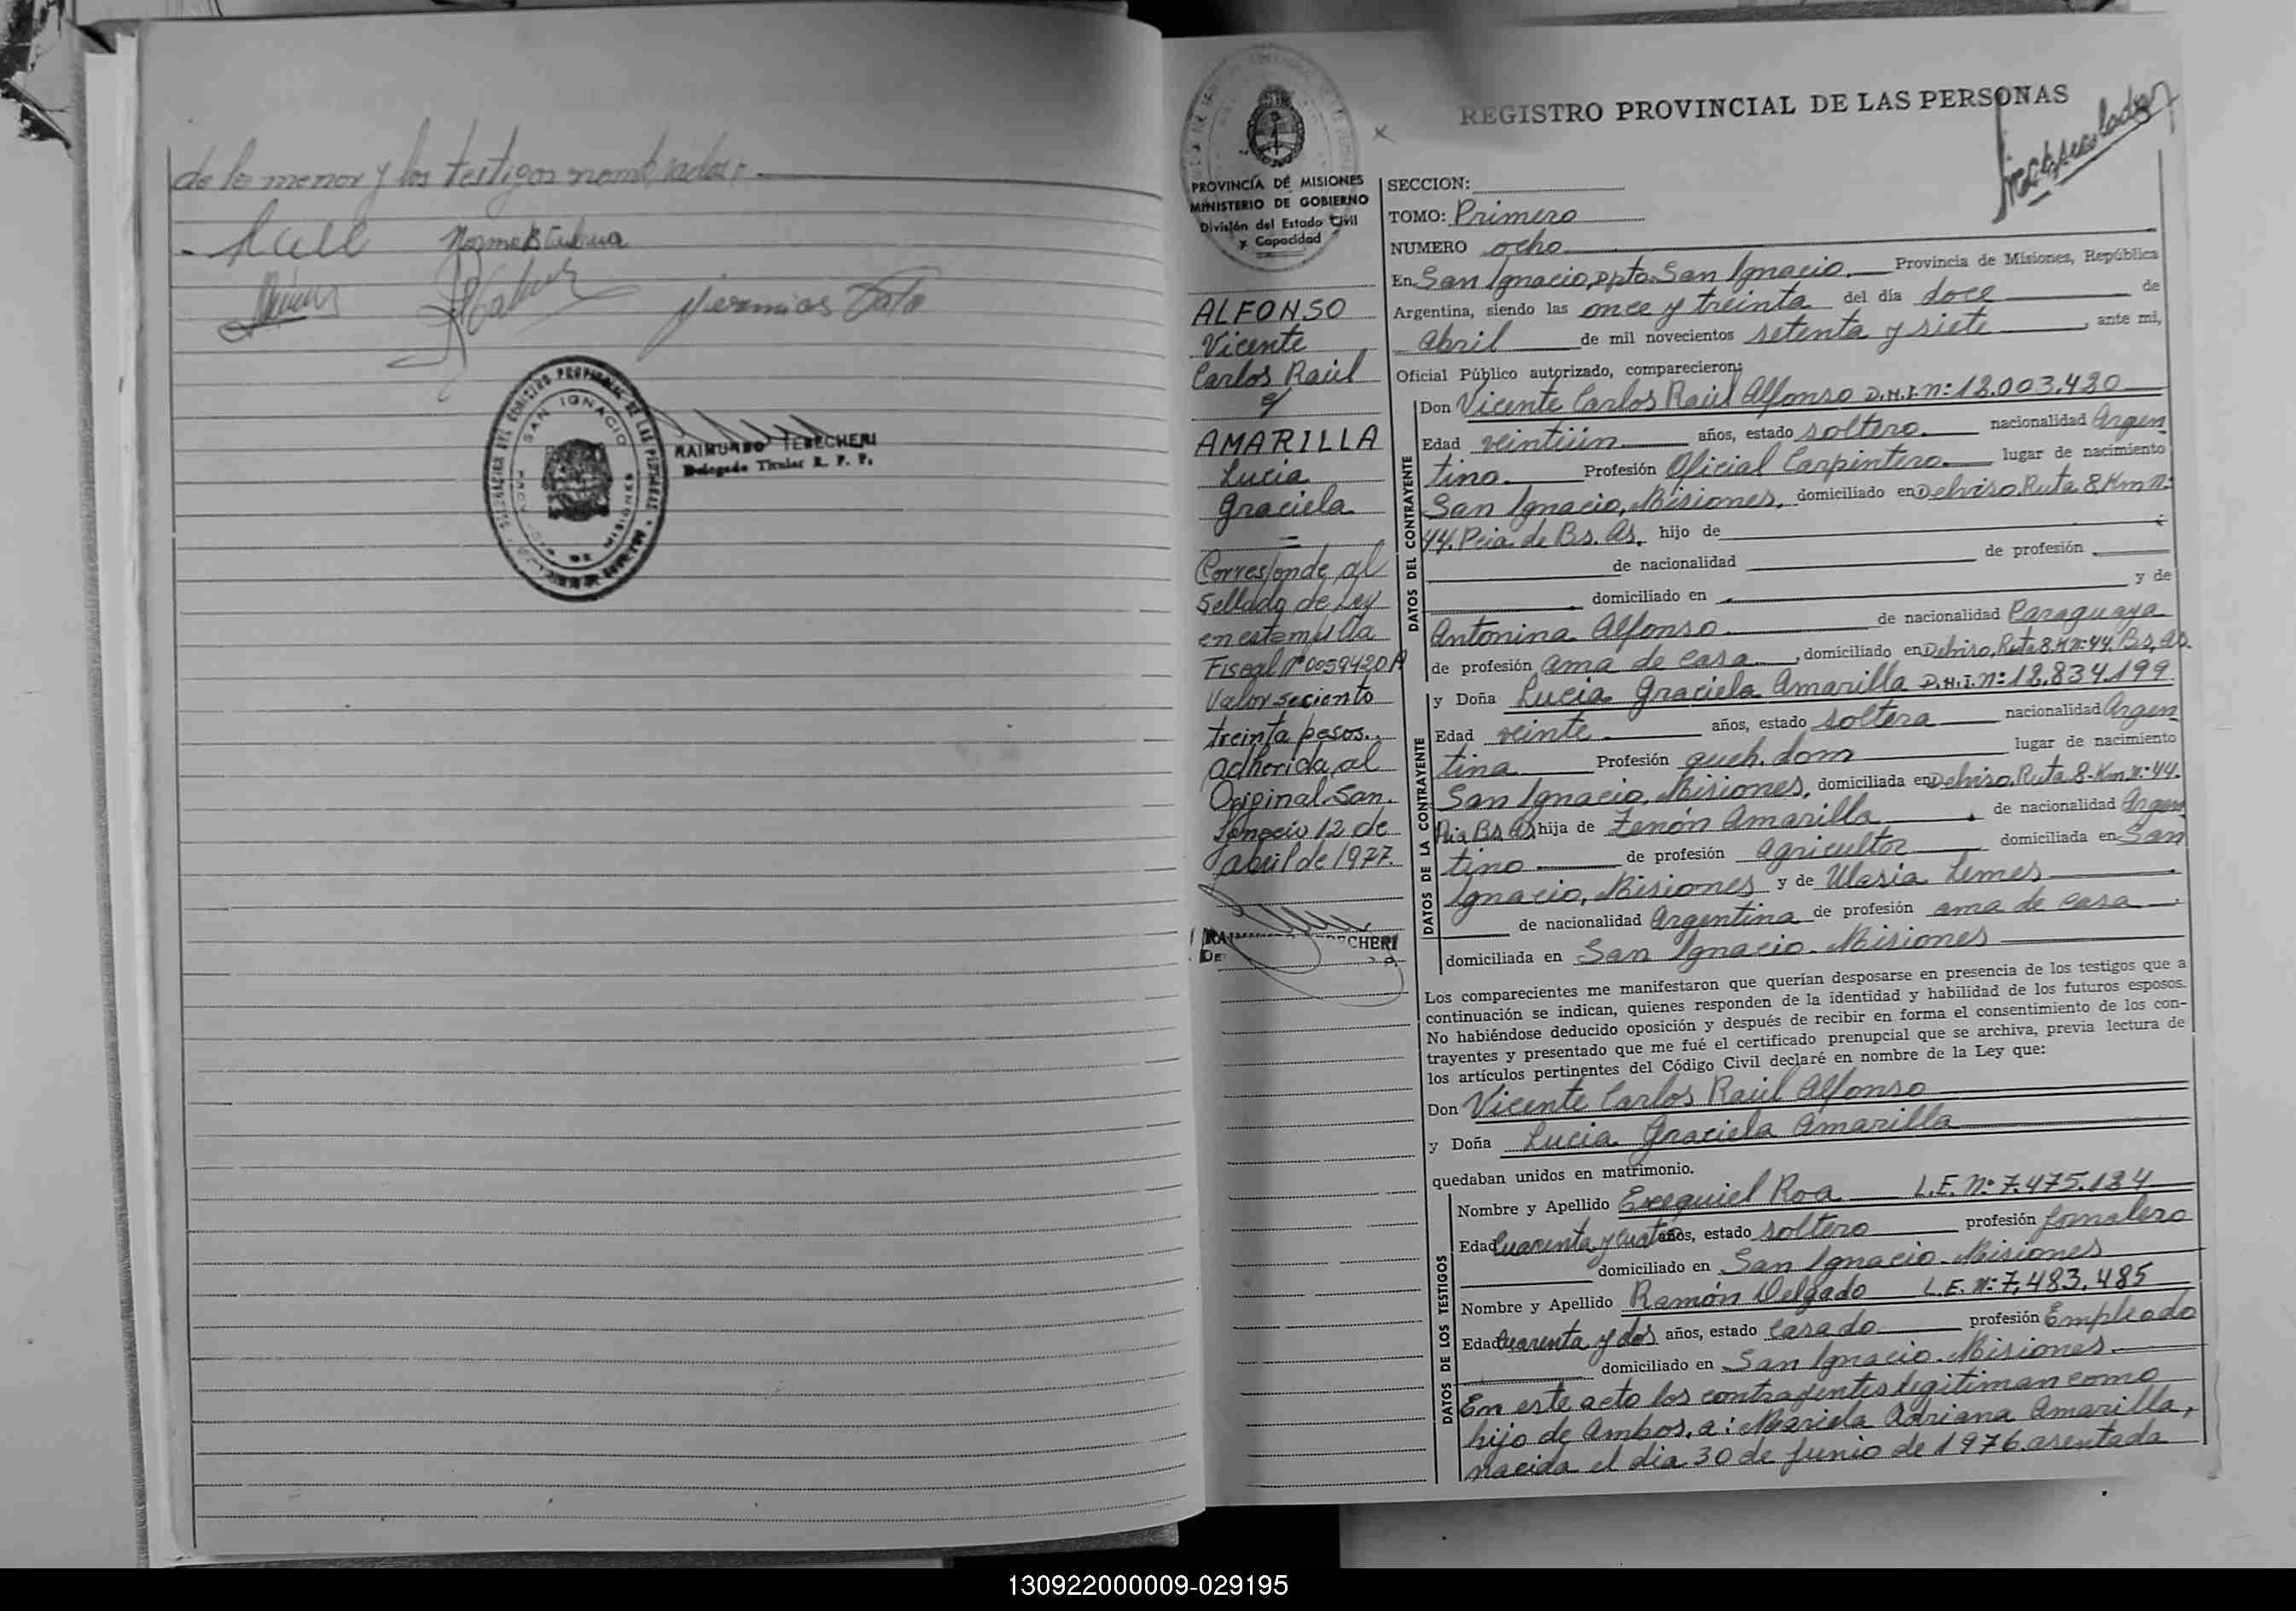 de la menor y los testigos nombrados.
Jeremias
SAN IGNACIO
MISIONES
RAIMUNDO TEBECHERI
Delegado Titular R. P. P.
REGISTRO PROVINCIAL DE LAS PERSONAS
PROVINCIA DE MISIONES
MINISTERIO DE GOBIERNO
División del Estado Civil
y Capacidad
ALFONSO
Vicente
Carlos Raúl
y
AMARILLA
Lucia
Graciela
=
Corresponde al
Sellado de Ley
en estampilla
Fiscal Nº 0059420A
Valor seciento
treinta pesos.
adherida al
Original San
Ignacio 12 de
abril de 1977.
CHERI
SECCION:
TOMO: Primero
NUMERO ocho
En San Ignacio, Dpto. San Ignacio. Provincia de Misiones, República
Argentina, siendo las once y treinta del día doce de
abril de mil novecientos setenta y siete, ante mi,
Oficial Público autorizado, comparecieron:
DATOS DEL CONTRAYENTE
Don Vicente Carlos Raúl Alfonso D.N.I. n: 12.003.420
Edad veintiún años, estado soltero. nacionalidad Argen
tino. Profesión Oficial Carpintero. lugar de nacimiento
San Ignacio, Misiones, domiciliado en Delviso, Ruta 8 Km n:
44. Pcia. de Bs. As. hijo de
de nacionalidad de profesión
domiciliado en y de
Antonina Alfonso de nacionalidad Paraguaya
de profesión ama de casa, domiciliado en Delviso, Ruta 8 Kn: 44. Bs. As.
DATOS DE LA CONTRAYENTE
y Doña Lucia Graciela Amarilla D.N.I. n: 12.834.199
Edad veinte años, estado soltera nacionalidad Argen
tina Profesión queh. dom lugar de nacimiento
San Ignacio, Misiones, domiciliada en Delviso, Ruta 8. Km n: 44.
Pcia Bs. As, hija de Zenón Amarilla de nacionalidad Argen
tino de profesión agricultor domiciliada en San
Ignacio, Misiones y de Maria Lemes
de nacionalidad Argentina de profesión ama de casa
domiciliada en San Ignacio. Misiones
Los comparecientes me manifestaron que querían desposarse en presencia de los testigos que a
continuación se indican, quienes responden de la identidad y habilidad de los futuros esposos.
No habiéndose deducido oposición y después de recibir en forma el consentimiento de los con-
trayentes y presentado que me fué el certificado prenupcial que se archiva, previa lectura de
los artículos pertinentes del Código Civil declaré en nombre de la Ley que:
Don Vicente Carlos Raúl Alfonso
y Doña Lucia Graciela Amarilla
quedaban unidos en matrimonio.
DATOS DE LOS TESTIGOS
Nombre y Apellido Exequiel Roa L.E. Nº 7.475.134
Edad Cuarenta y cuatro años, estado soltero profesión Jornalero
domiciliado en San Ignacio. Misiones
Nombre y Apellido Ramón Delgado L.E. N: 7.483.485
Edad Cuarenta y dos años, estado Casado profesión Empleado
domiciliado en San Ignacio. Misiones.
En este acto los contrayentes legitiman como
hijo de Ambos, a: Mariela Adriana Amarilla,
nacida el dia 30 de Junio de 1976 asentada
130922000009-029195